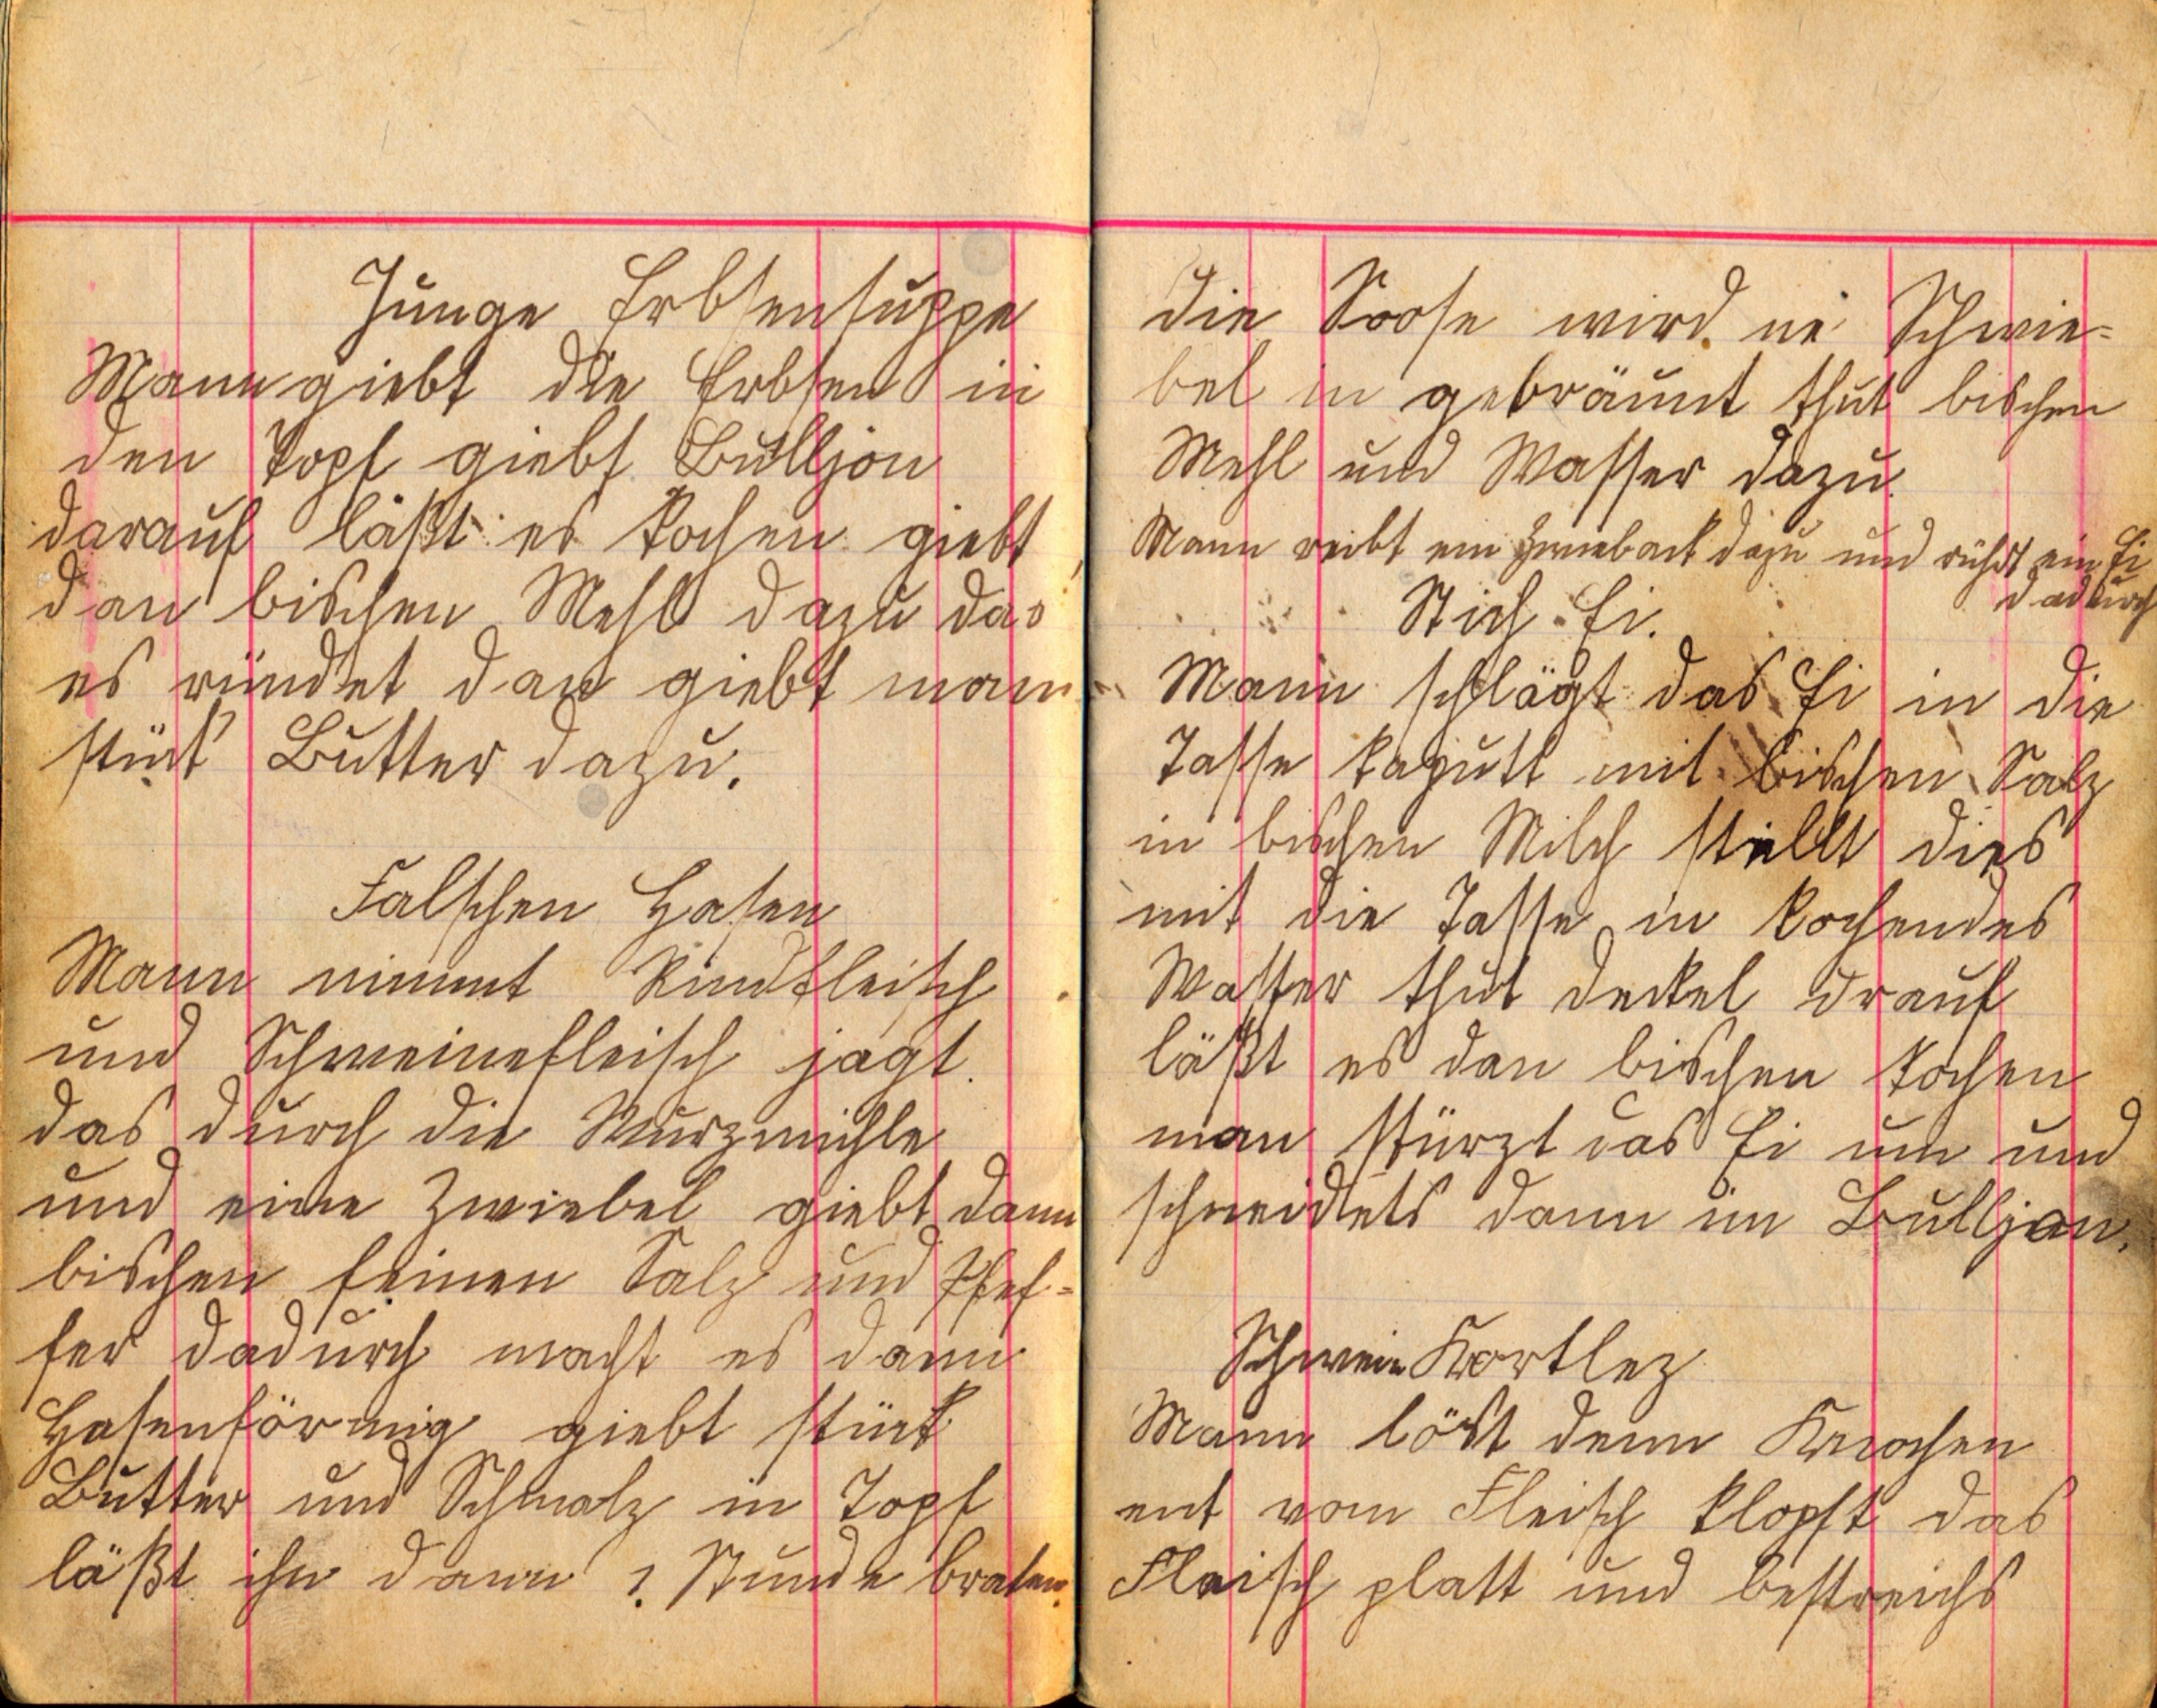 Junge Erbsensuppe
Mann giebt die Erbsen in
den Topf giebt Bulljon
darauf läßt es kochen giebt
dan bischen Mehl dazu das
es ründet dan giebt mann
stük Butter dazu.
Falschen Hasen
Mann nimmt Rindfleisch
und Schweinefleisch jagt
das durch die Wurzmühle
und eine Zwiebel giebt dann
bischen feinen Salz und Pfef-
fer dadurch macht es dann
Hasenförmig giebt stük
Butter und Schmalz in Topf
läßt ihn dann 1 Stunde braten.
die Soose wird ne Schwie-
bel in gebräunt thut bischen
Mehl und Wasser dazu.
Mann reibt ein Zwieback dazu und rührt ein Ei
dadurch
Stich Ei.
Mann schlägt das Ei in die
Tasse kaputt mit bischen Salz
in bischen Milch stellt dies
mit die Tasse in kochendes
Wasser thut deckel drauf
läßt es dan bischen kochen
man stürzt das Ei um und
schneidets dann in Bulljon.
Schwein Kortlez
Mann löst denn Knochen
ent vom Fleisch klopft das
Fleisch platt und bestreichs